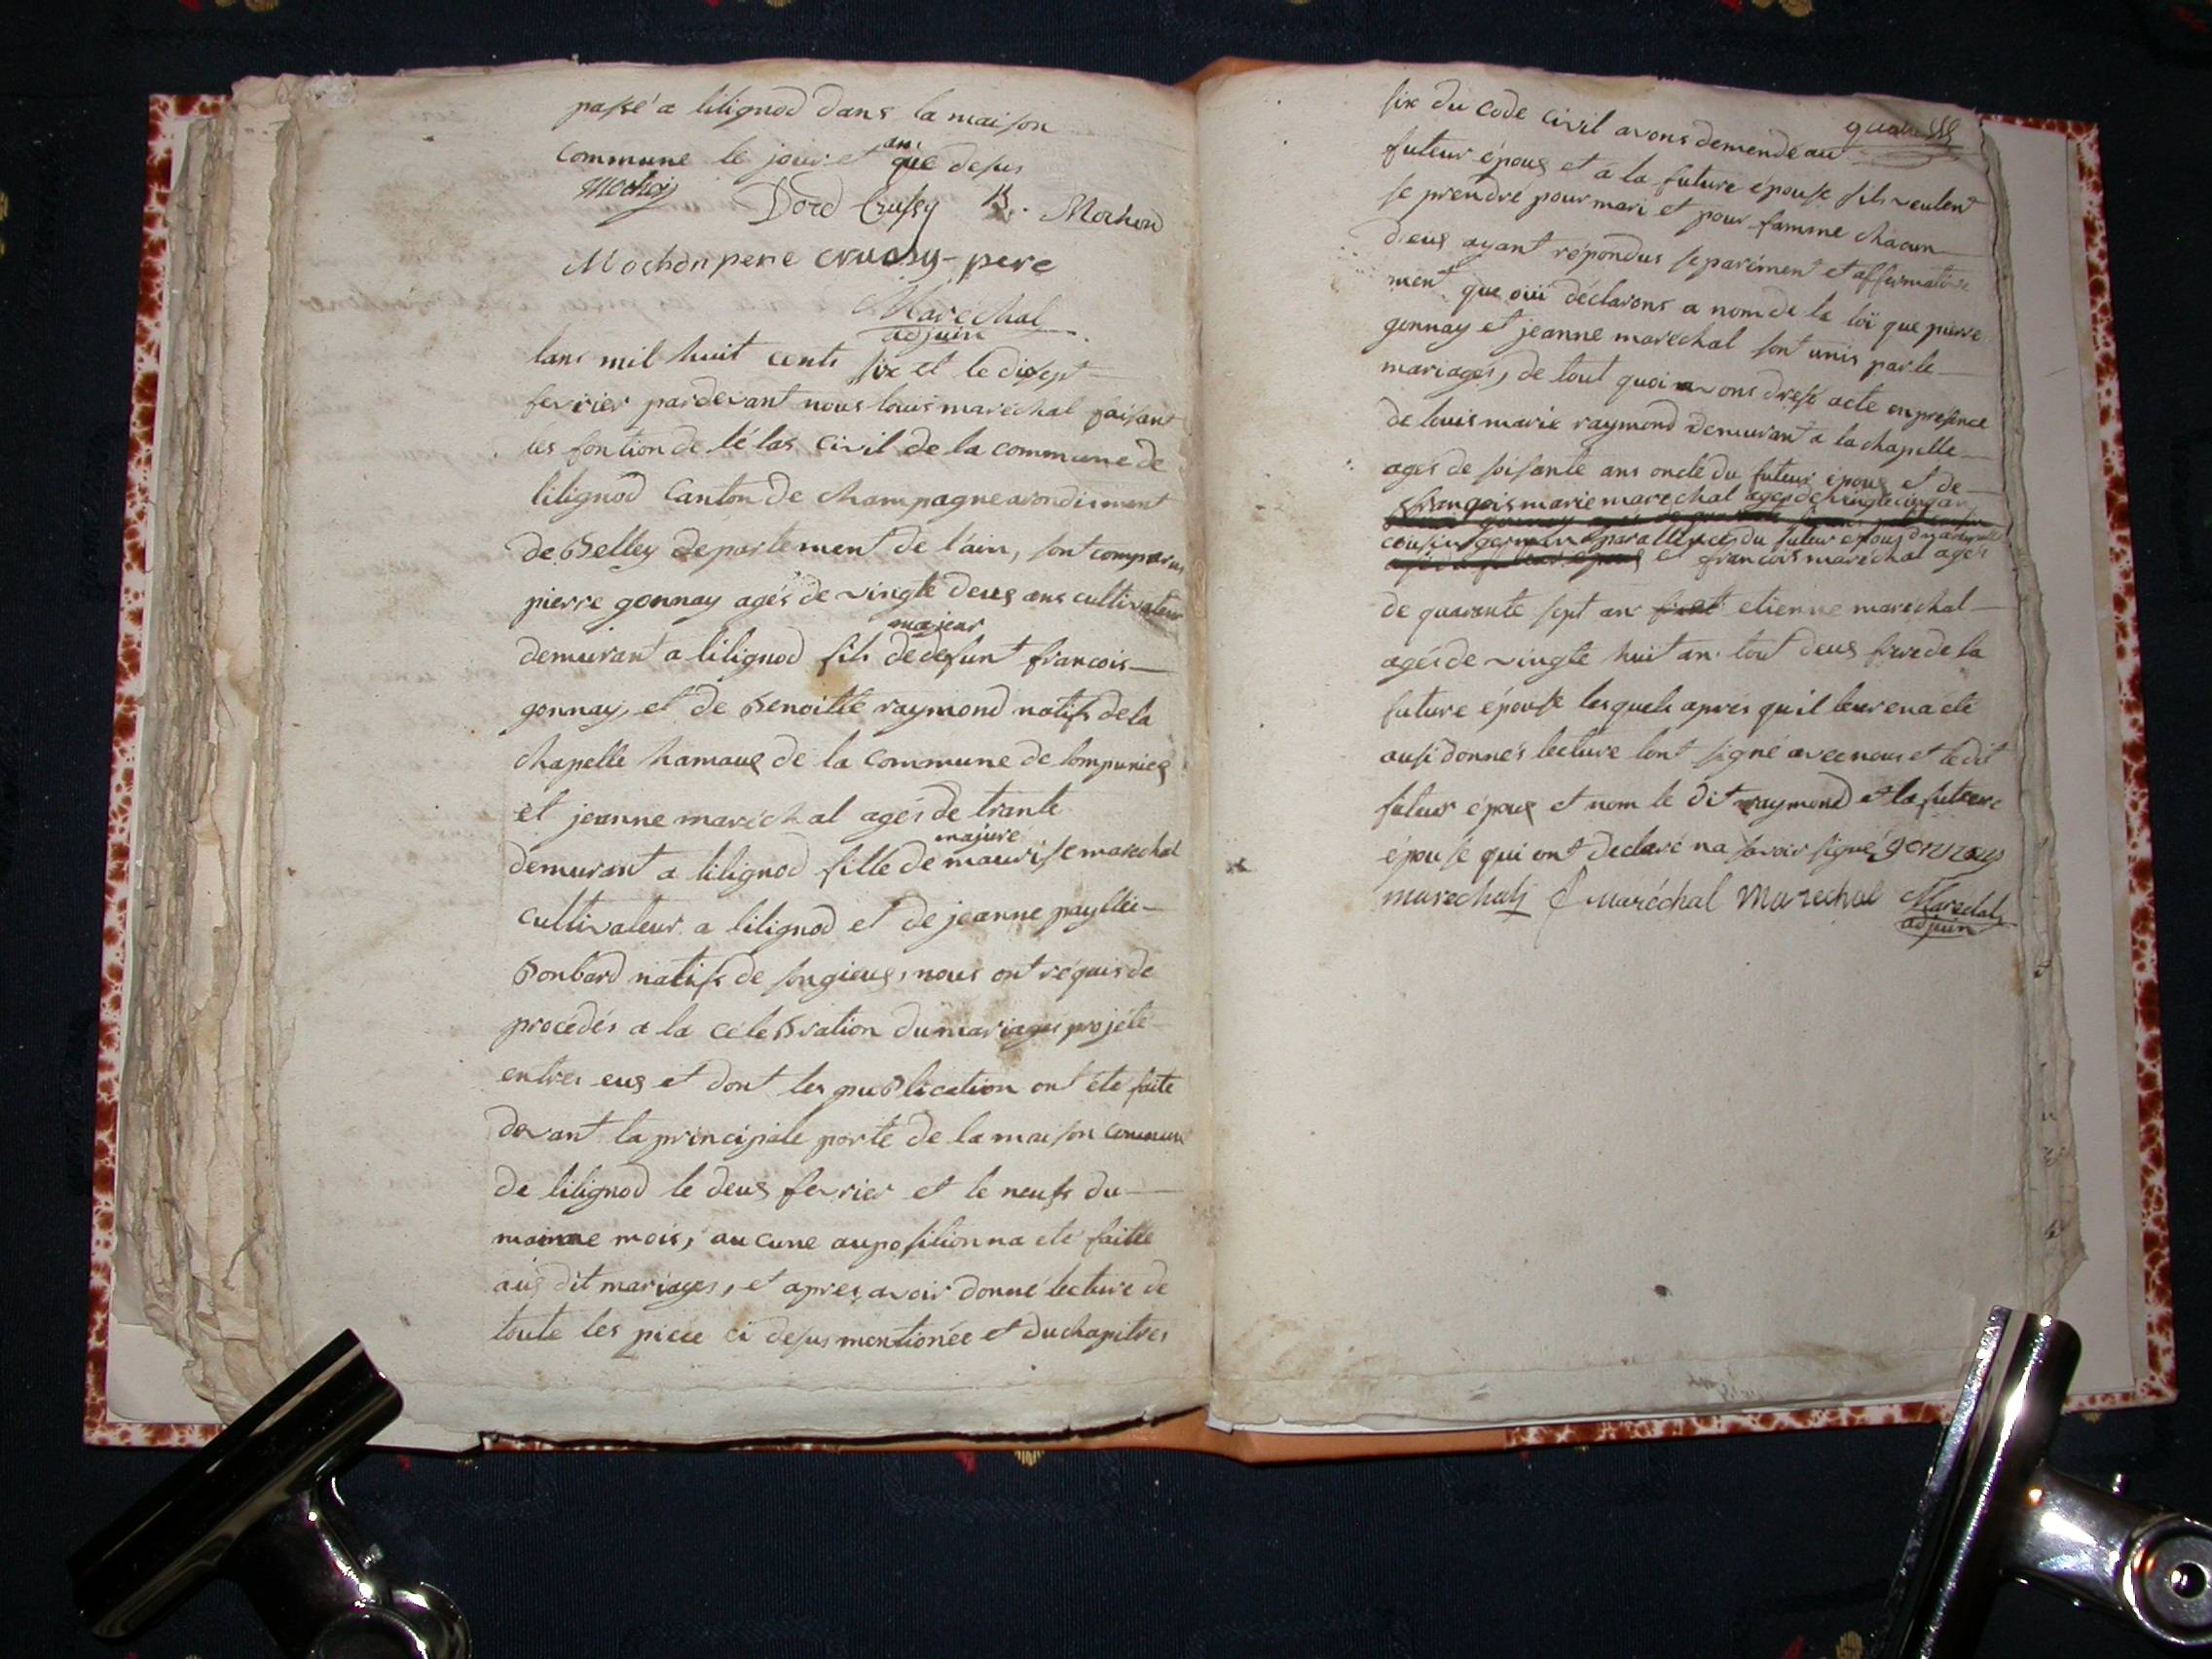 passé a lilignod dans la maison
commune le jour et an que desus
Mochon Dord Crussy B. Mochon
Mochon pere crussy pere
Maréchal
adjuin
lans mil huit cents six et le disept
fevrier pardevant nous louis maréchal faisant
les fontion de létas civil de la commune de
lilignod Canton de champagne arondisment
de Belley departement de l'ain, sont comparus
pierre gonnay agés de vingte deus ans cultivateur
majeur
demurant a lilignod fils de defunt francois
gonnay, et de Benoitte raymond natifs de la
chapelle hamaus de la commune de lompnieu
et jeanne maréchal agés de trante
majure
demurant a lilignod fille de maurise marechal
cultivateur a lilignod et de jeanne
Bonbard natifs de songieus, nous ont réquis de
procédés a la céleBration du mariages projété
entres eus et dont les puBlication ont été faite
devant la principale porte de la maison commune
de lilignod le deus fevrier et le neufs du
mainme mois, aucune auposition na été faitte
aus dit mariages, et apres avoir donné lecture de
toute les piece ci desus mentionée et du chapitres
six du code civil avons demende au
futeur épous et a la future épouse sils veulent
se prendre pour mari et pour famme chacun
deus ayant répondus séparément et affirmative
ment que oui déclarons a nom de la loi que pierre
gonnay et jeanne maréchal sont unis par le
mariages, de tout quoi avons dresé acte en presence
de louis marie raymond demurant a la chapelle
agés de soisante ans oncle du futeur épous et de
François marie marechal ages de vingte cinq an
cousin germin du futeur epous
et francois maréchal agés
de quarante sept an etienne maréchal
agés de vingte huit an tout deus frere de la
future épouse lesquels aprés quil leur en a été
ausi donnés lecture lont signé avec nous et le dit
futeur épous et nom le dit raymond et la future
épouse qui ont declaré na savoir signé gonnay
marechal f maréchal Marechal Maréchal
adjuin